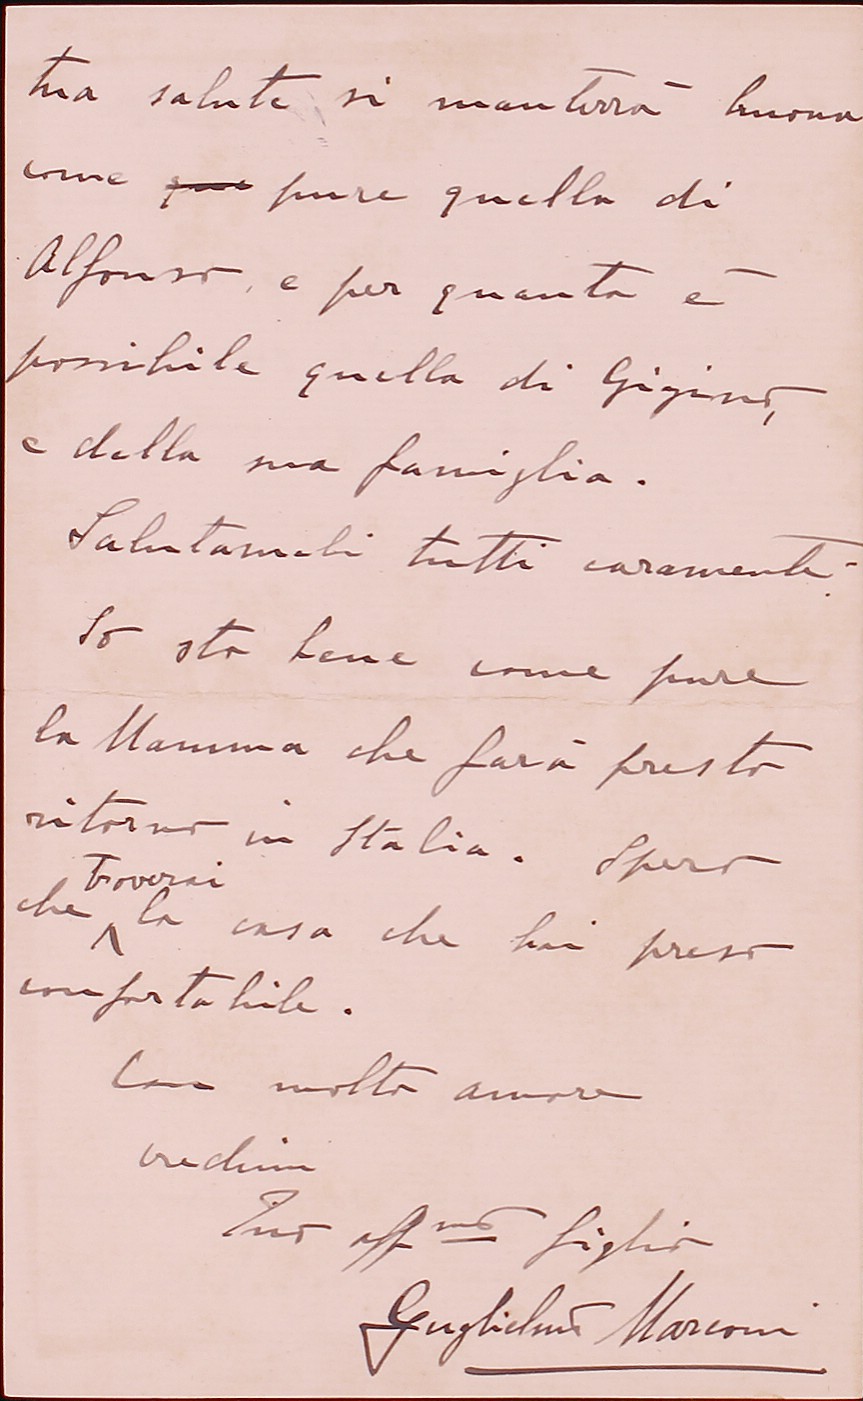 tua salute si manterrà buona
come pure quella di
Alfonso, e per quanto è
possibile quella di Gigino,
e della sua famiglia.
Salutameli tutti caramente.
Io sto bene come pure
la Mamma che farà presto
ritorno in Italia. Spero
troverai
che la casa che hai preso
confortabile.
Con molto amore
credimi
Tuo affmo figlio
Guglielmo Marconi